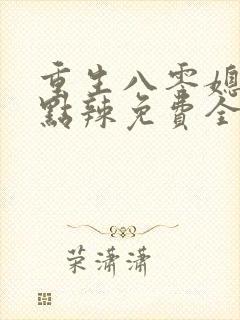 重生八零媳
點辣免費全
荣潇潇